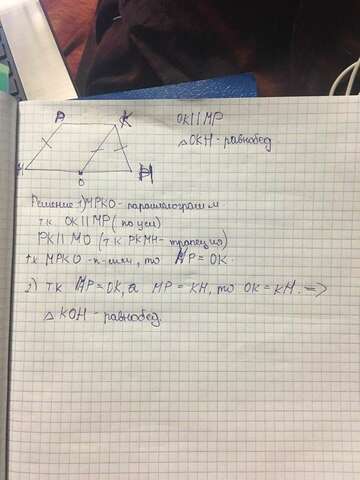 P K
OK || MP
△ОКН - равнобед
O
Решение 1) МРКО - параллелограмм
т.к ОК || МР (по усл)
PK || MO (т.к РКМН - трапеция)
тк МРКО - п-мм, то MP = OK.
2) тк MP = OK, а MP = KH, то OK = KH. =>
△ KOH - равнобед.